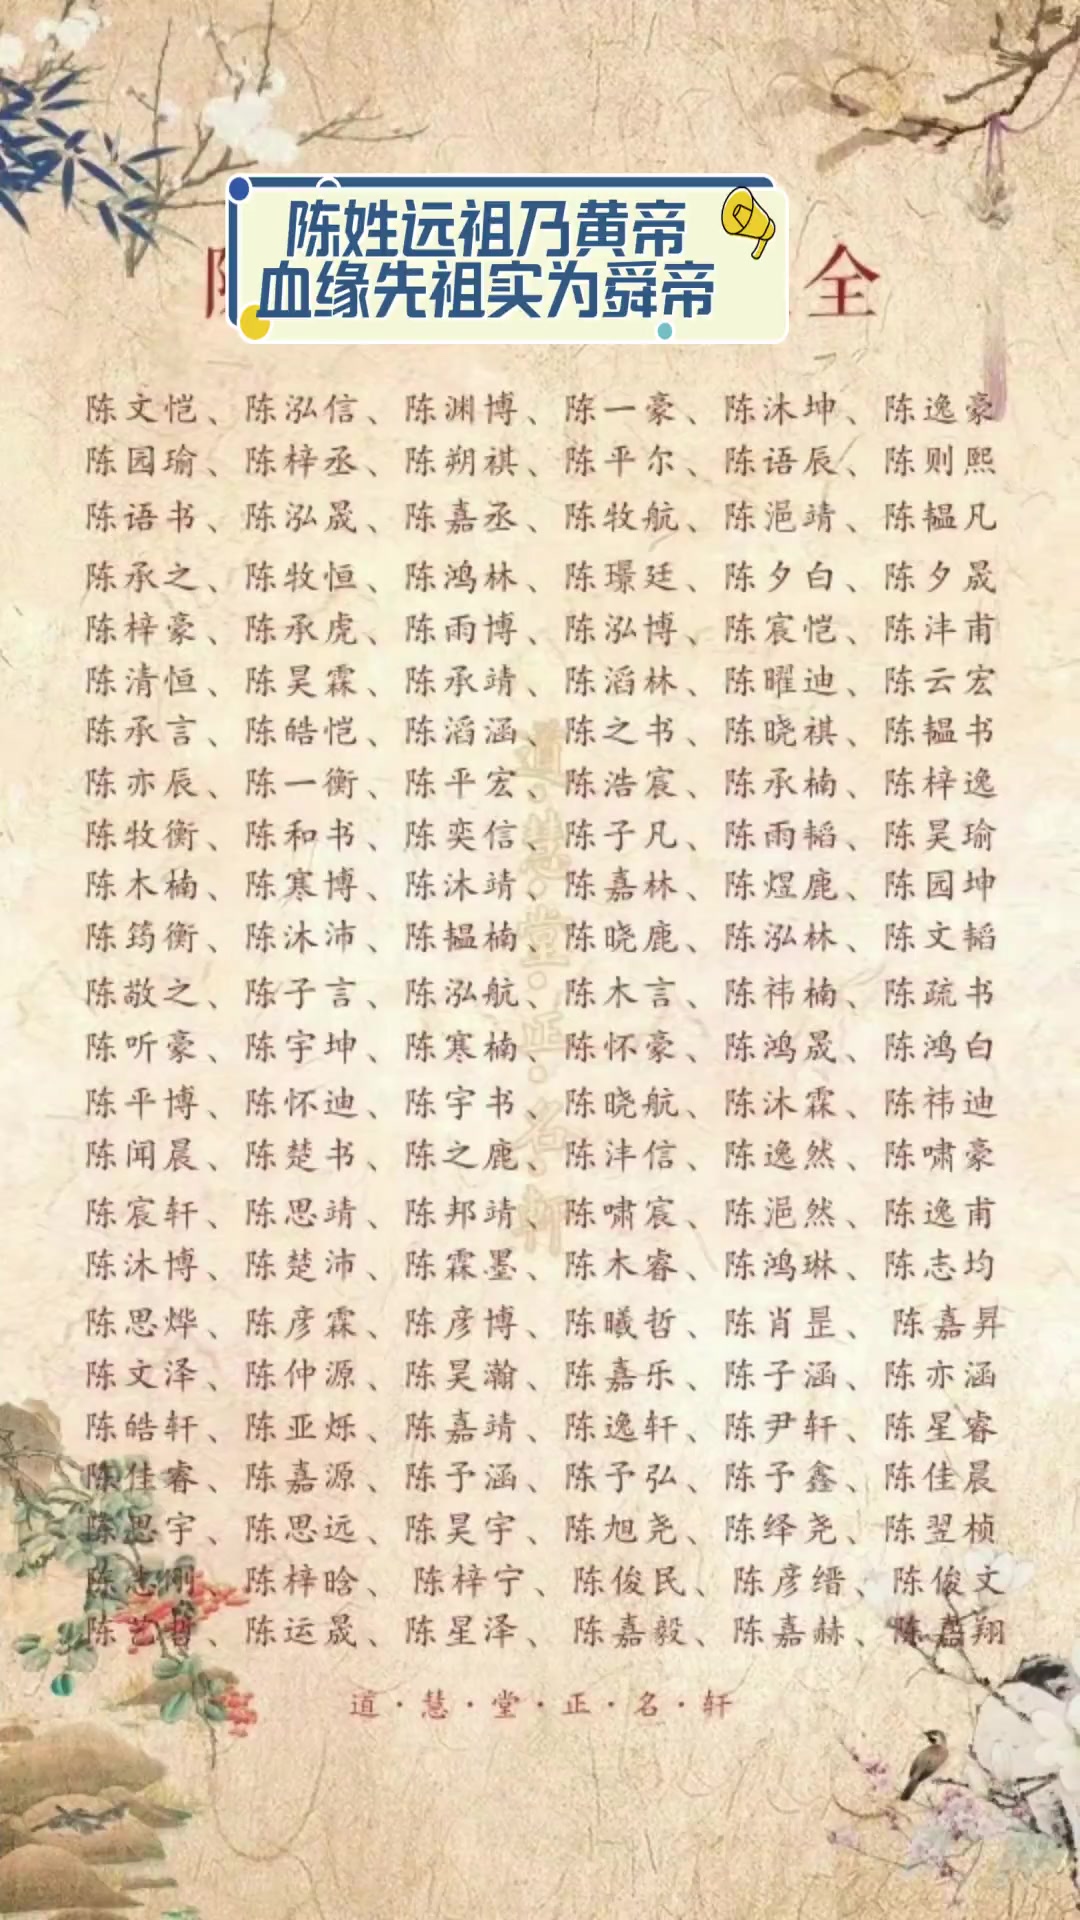 陈姓远祖乃黄帝
血缘先祖实为舜帝
全
陈文恺、陈泓信、陈渊博、陈一豪、陈沐坤、陈逸豪
陈园瑜、陈梓丞、陈朔祺、陈平尔、陈语辰、陈则熙
陈语书、陈泓晟、陈嘉丞、陈牧航、陈浥靖、陈韫凡
陈承之、陈牧恒、陈鸿林、陈璟廷、陈夕白、陈夕晟
陈梓豪、陈承虎、陈雨博、陈泓博、陈宸恺、陈沣甫
陈清恒、陈昊霖、陈承靖、陈滔林、陈曜迪、陈云宏
陈承言、陈皓恺、陈滔涵、陈之书、陈晓祺、陈韫书
陈亦辰、陈一衡、陈平宏、陈浩宸、陈承楠、陈梓逸
陈牧衡、陈和书、陈奕信、陈子凡、陈雨韬、陈昊瑜
陈木楠、陈寒博、陈沐靖、陈嘉林、陈煜鹿、陈园坤
陈筠衡、陈沐沛、陈韫楠、陈晓鹿、陈泓林、陈文韬
陈敬之、陈子言、陈泓航、陈木言、陈祎楠、陈疏书
陈听豪、陈宇坤、陈寒楠、陈怀豪、陈鸿晟、陈鸿白
陈平博、陈怀迪、陈宇书、陈晓航、陈沐霖、陈祎迪
陈闻晨、陈楚书、陈之鹿、陈沣信、陈逸然、陈啸豪
陈宸轩、陈思靖、陈邦靖、陈啸宸、陈浥然、陈逸甫
陈沐博、陈楚沛、陈霖墨、陈木睿、陈鸿琳、陈志均
陈思烨、陈彦霖、陈彦博、陈曦哲、陈肖罡、陈嘉昇
陈文泽、陈仲源、陈昊瀚、陈嘉乐、陈子涵、陈亦涵
陈皓轩、陈亚烁、陈嘉靖、陈逸轩、陈尹轩、陈星睿
陈佳睿、陈嘉源、陈予涵、陈予弘、陈予鑫、陈佳晨
陈思宇、陈思远、陈昊宇、陈旭尧、陈绎尧、陈翌桢
陈志刚、陈梓晗、陈梓宁、陈俊民、陈彦缙、陈俊文
陈艺哲、陈运晟、陈星泽、陈嘉毅、陈嘉赫、陈嘉翔
道·慧·堂·正·名·轩
道·慧·堂·正·名·轩